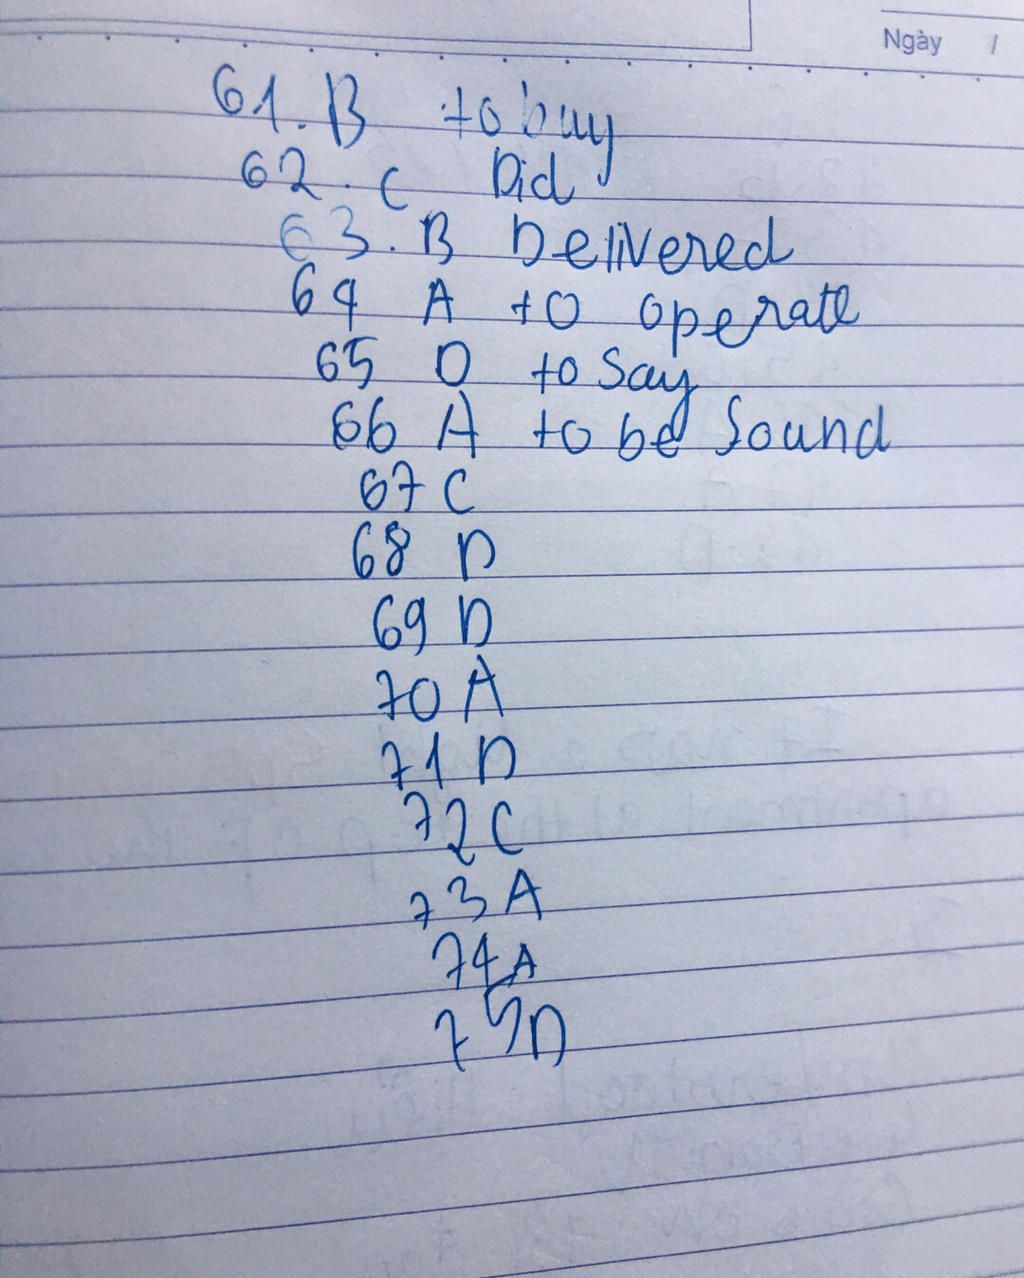 Ngày /
61. B to buy
62. C Did
63. B Delivered
64 A to operate
65 D to Say
66 A to be Sound
67 C
68 D
69 D
70 A
71 D
72 C
73 A
74 A
75 D